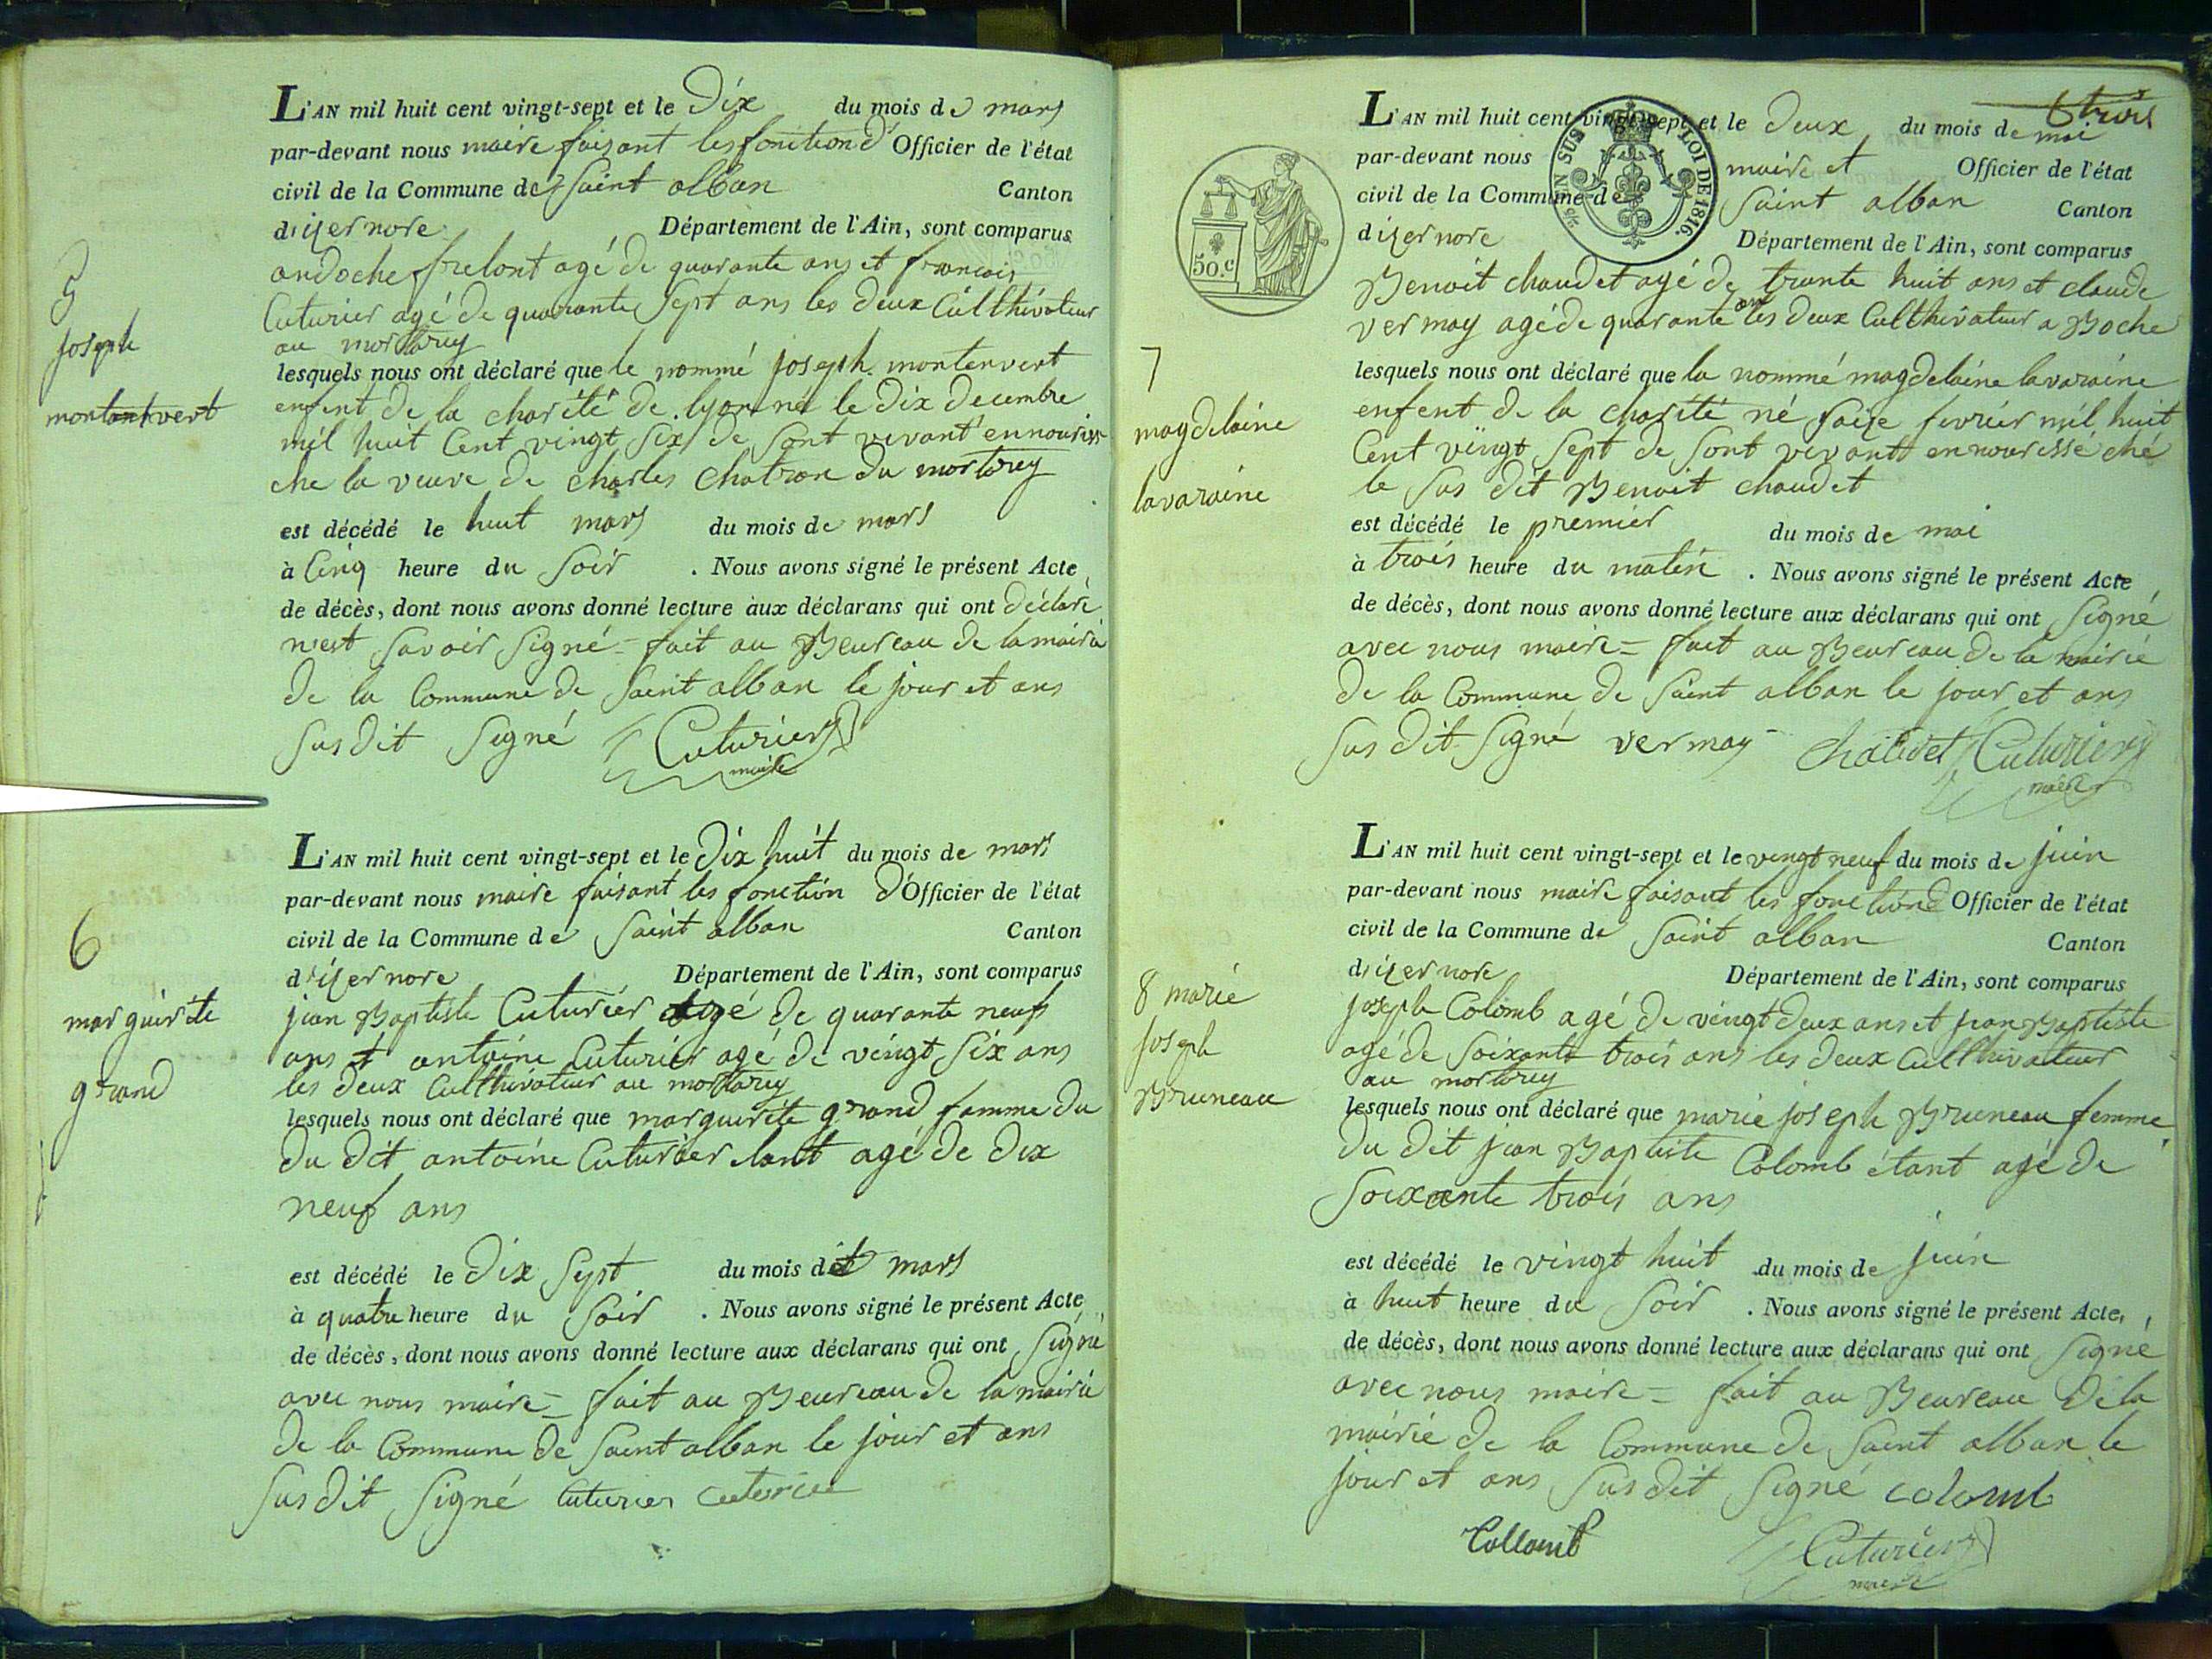 L'AN mil huit cent vingt-sept et le Dix du mois de mars
par-devant nous maire faisant les fonction d' Officier de l'état
civil de la Commune de Saint alban Canton
d'izernore Département de l'Ain, sont comparus
andoche frelont agé de quarante ans et francois
Cuturier agé de quarante Sept ans les deux Culthivateur
au mortarey
lesquels nous ont déclaré que le nommé joseph montenvert
enfent de la charité de lyon né le dix decembre
mil huit Cent vingt Six de Sont vivant en nouriss
che la veuve de charles chatron du mortarey
est décédé le huit mars du mois de mars
à Cinq heure du Soir . Nous avons signé le présent Acte
de décès, dont nous avons donné lecture aux déclarans qui ont déclaré
n'est Savoir Signé = fait au Beureau de la mairie
de la Commune de Saint alban le jour et ans
Sus dit Signé Cuturier
maire
5
joseph
montantvert
L'AN mil huit cent vingt-sept et le Dix huit du mois de mars
par-devant nous maire faisant les fonction d'Officier de l'état
civil de la Commune de Saint alban Canton
d'izernore Département de l'Ain, sont comparus
jian Baptiste Cuturier agé de quarante neuf
ans et antoine Cuturier agé de vingt Six ans
les deux Culthivateur au mortarey
lesquels nous ont déclaré que marguirite grand famme du
du dit antoine Cuturier lant agé de dix
neuf ans
est décédé le Dix Sept du mois de mars
à quatre heure du Soir . Nous avons signé le présent Acte
de décès, dont nous avons donné lecture aux déclarans qui ont Signé
avec nous maire = fait au Beureau de la mairie
de la Commune de Saint alban le jour et ans
Sus dit Signé Cuturier cuturier
6
marguirite
grand
trois
L'AN mil huit cent vingt-sept et le Deux du mois de mai
par-devant nous maire et Officier de l'état
civil de la Commune de Saint alban Canton
d'izernore Département de l'Ain, sont comparus
EN SUS LOI DE 1816.
50.c
Benoit chaudet agé de trante huit ans et claude
vermay agé de quarante ans les deux Culthivateur a Boche
lesquels nous ont déclaré que la nommé magdelaine lavaraine
enfent de la charité né Saize fevriér mil huit
Cent vingt Sept de Sont vivant en nourissé ché
le Sus dit Benoit chaudet
est décédé le premiér du mois de mai
à trois heure du matin . Nous avons signé le présent Acte
de décès, dont nous avons donné lecture aux déclarans qui ont Signé
avec nous maire = fait au Beureau de la mairie
de la Commune de Saint alban le jour et ans
Sus dit Signé vermay chaudet Cuturier
maire
7
magdelaine
lavaraine
L'AN mil huit cent vingt-sept et le vingt neuf du mois de juin
par-devant nous maire faisant les fonction d Officier de l'état
civil de la Commune de Saint alban Canton
d'izernore Département de l'Ain, sont comparus
joseph Colomb agé de vingt deux ans et jean Baptiste
agé de Soixante trois ans les deux Culthivateur
au mortarey
lesquels nous ont déclaré que marie joseph Bruneau femme
du dit jian Baptiste Colomb étant agé de
Soixante trois ans
est décédé le vingt huit du mois de juin
à huit heure du Soir . Nous avons signé le présent Acte,
de décès, dont nous avons donné lecture aux déclarans qui ont Signé
avec nous maire = fait au Beureau de la
mairie de la Commune de Saint alban le
jour et ans Sus dit Signé colomb
Collomb Cuturier
maire
8 marie
joseph
Bruneau